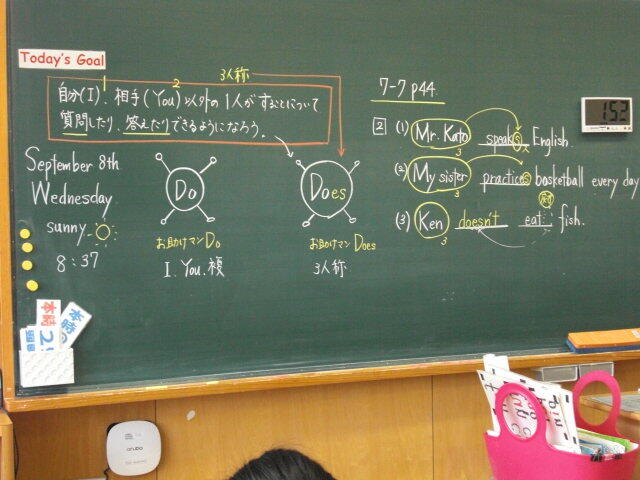 Today's Goal
3人称
1 2
自分(I)、相手(You)以外の1人がすることについて
質問したり、答えたりできるようになろう。
September 8th
Wednesday
sunny
8:37
Do
お助けマンDo
I. You. 複
Does
お助けマンDoes
3人称
7-7 p44.
2 (1) Mr. Kato speaks English.
3
(2) My sister practices basketball every day
3
(3) Ken doesn't eat fish.
3
152
本時
本時の
aruba